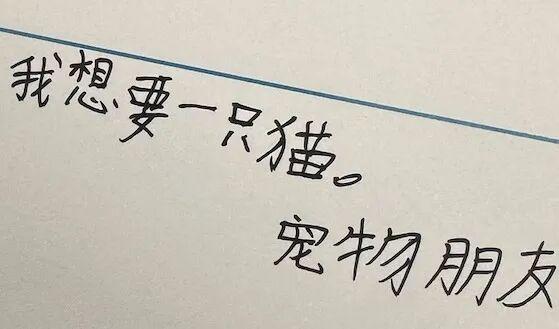 我想要一只猫。
宠物朋友